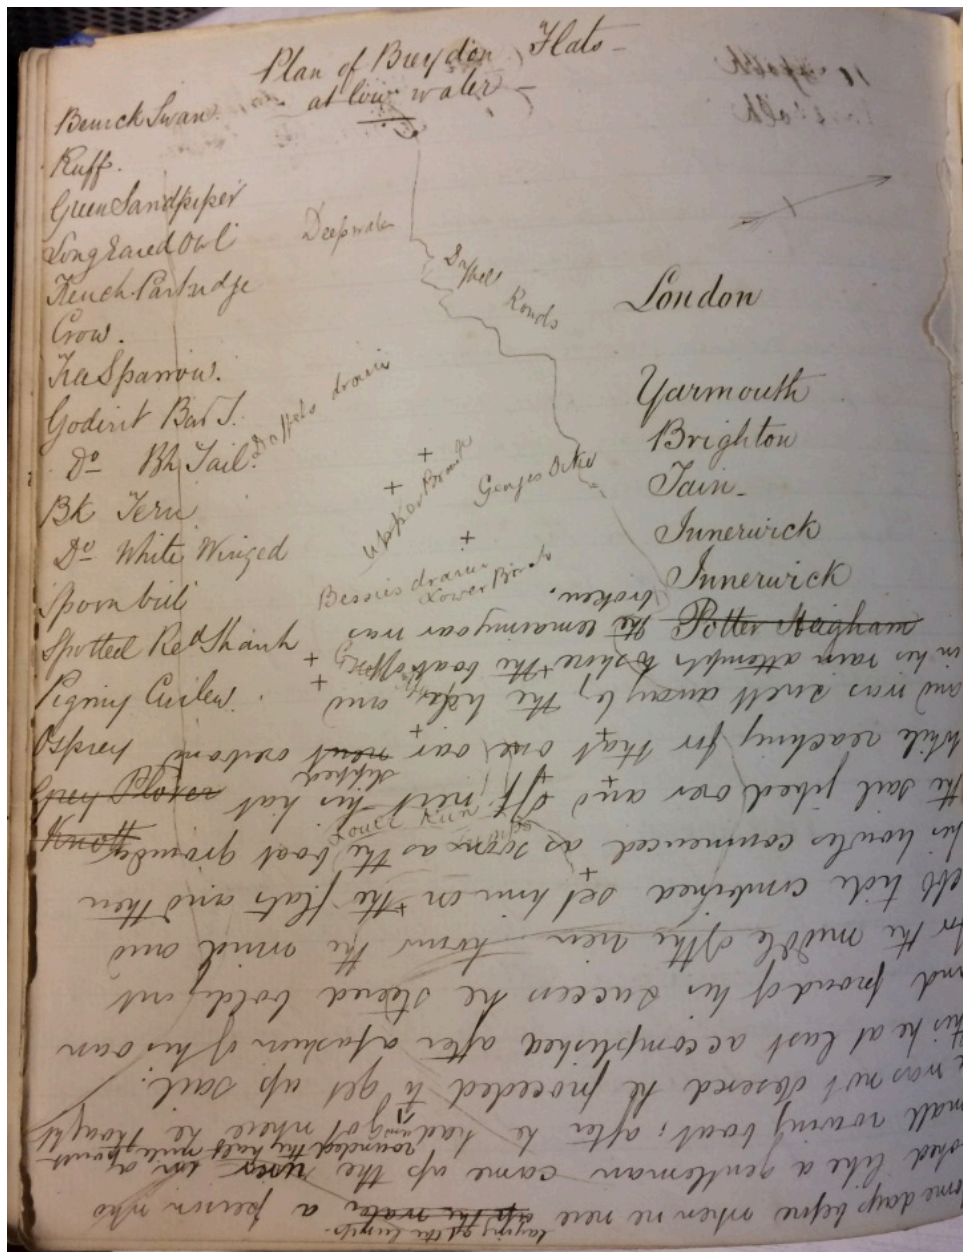 Plan of Breydon Flats -
at low water -
Bewick Swan
Ruff.
Green Sandpiper
Long Eared Owl
French Partridge
Crow.
Tree Sparrow.
Godwit Bar T.
Do Bk Tail.
Bk Tern
Do White Winged
Spoonbill
Spotted Red Shank
Pigmy Curlew.
Osprey
Grey Plover
Knott
Deepwater
Ronds
Duffels drain
Upper
Bessies drain
Lower
London
Yarmouth
Brighton
Tain -
Innerwick
Innerwick
Potter Heigham
some days before when we were up the water a person who
laying off the lumps.
like a gentleman came up the river in a
rounded the half mile point
small rowing boat; after he had and got where he thought
he was not observed he proceeded to get up sail.
this he at last accomplished after a fashion of his own
and proud of his success he steered boldly out
for the middle of the river turns the wind and
ebb tide combined set him on the flats and then
his howls commenced as soon as the boat grounded
the sail jibed over and off went his hat
while reaching for that one oar went slipped overboard
and was swept away by the tide, and
in his vain attempts to shove the boat off
the remaining oar was
broken.